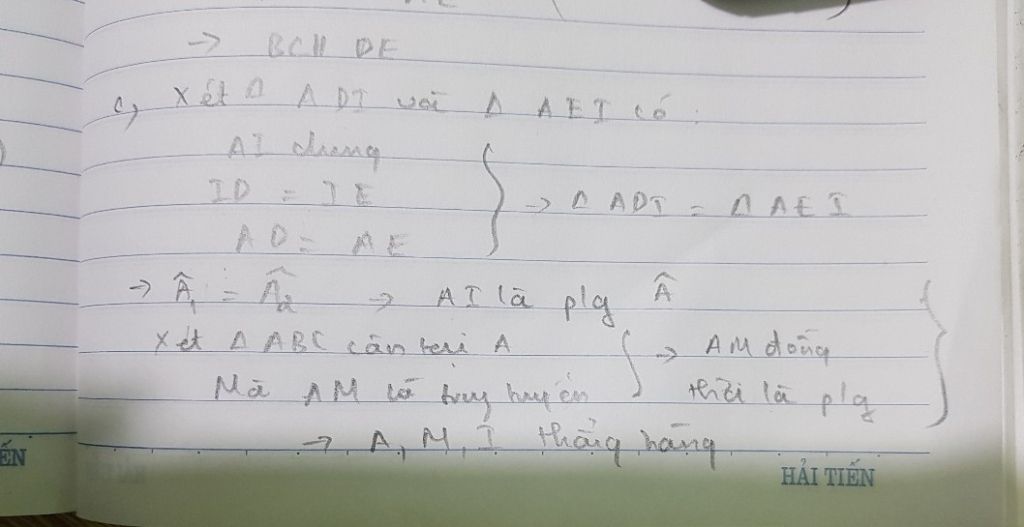 → BC // DE
c, Xét Δ ADI với Δ AEI có :
AI chung
ID = IE
AD = AE
→ Δ ADI = Δ AEI
→ Â₁ = Â₂ → AI là plg Â
Xét Δ ABC cân tại A
Mà AM là trug tuyến
→ AM đồng
thời là plg
→ A, M, I thẳng hàng
ẾN
HẢI TIẾN